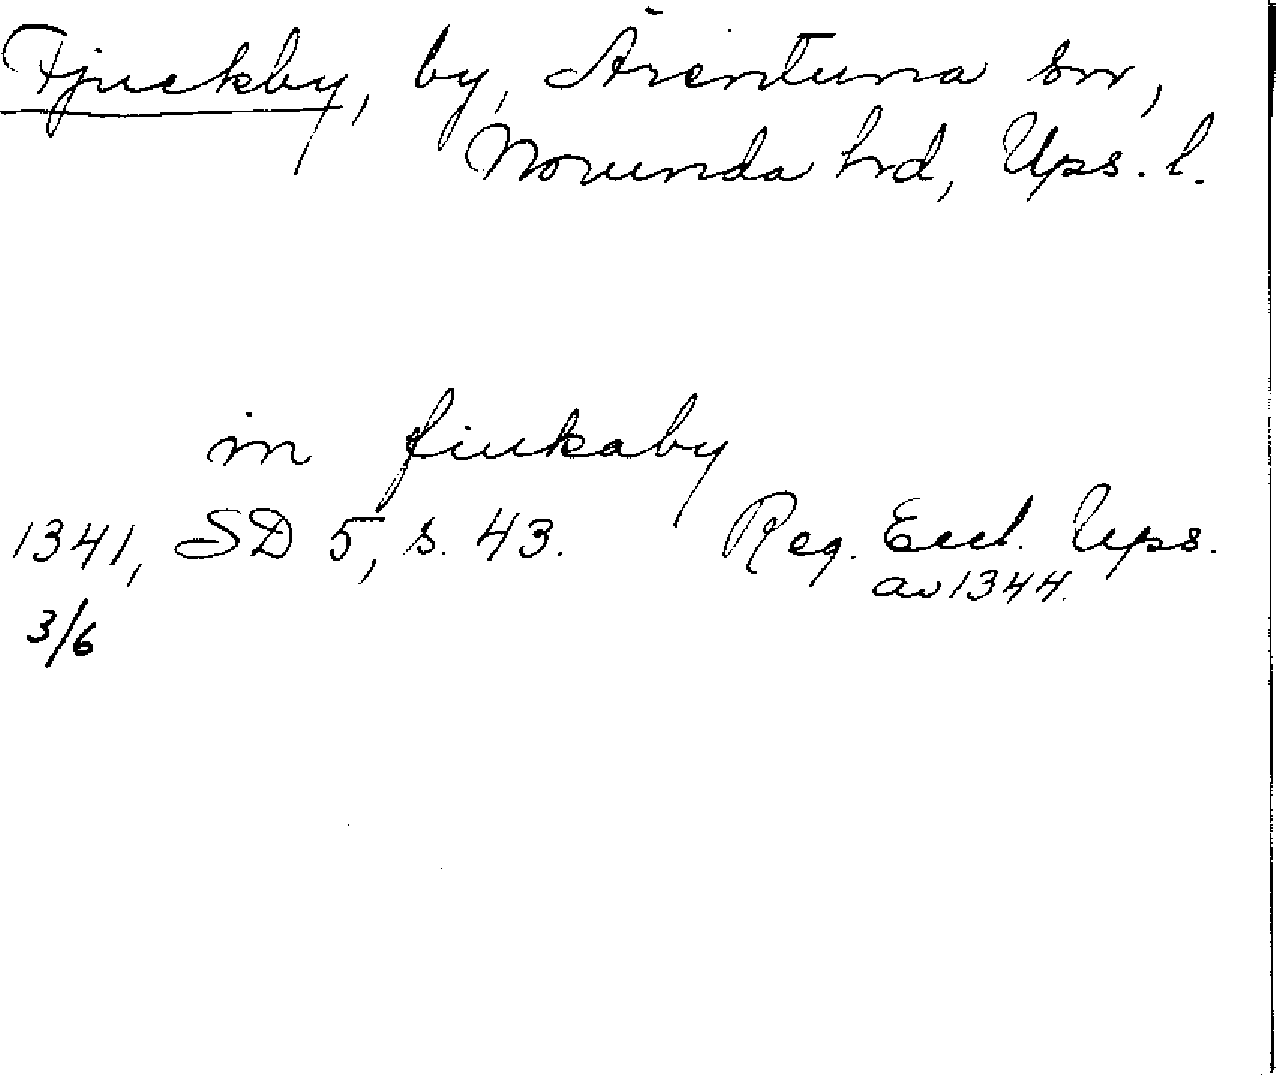 Fjuckby, by, Ärentuna sn,
Norunda hrd, Ups. l.
in fiukaby
1341, SD 5, s. 43. Reg. Eccl. Ups.
3/6 av 1344.